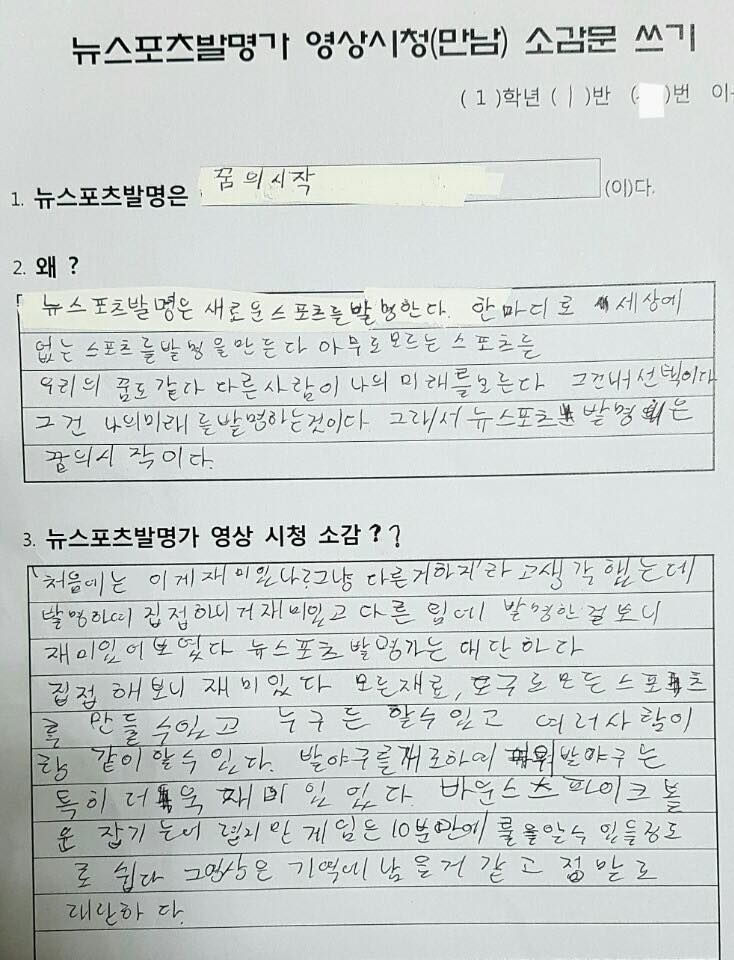 뉴스포츠발명가 영상시청(만남) 소감문 쓰기
( 1 )학년 ( 1 )반 ( )번 이
1. 뉴스포츠발명은 꿈의시작 (이)다.
2. 왜 ?
뉴스포츠발명은 새로운스포츠를발명한다. 한마디로 세상에
없는 스포츠를발명을만든다 아무로모르는 스포츠를
우리의 꿈도같다 다른사람이 나의 미래를모른다 그건내선택이다
그건 나의미래를발명하는것이다 그래서 뉴스포츠 발명은
꿈의시작이다.
3. 뉴스포츠발명가 영상 시청 소감 ??
'처음에는 이게재미있나?그냥 다른거하지'라고생각했는데
발명하여 집접하니커재미있고 다른 팀에 발명한걸보니
재미있어보였다 뉴스포츠발명가는 대단하다
집접 해보니 재미있다 모든재료, 도구로모든스포츠
를 만들수있고 누구든 할수있고 여러사람이
랑 같이할수있다. 발야구를재로하여 발야구는
특히 더욱 재미있었다. 바운스스파이크볼
은 잡기는어렵지만게임은10분만에 룰을알수있을정도
로 쉽다 그영상은 기억에남을거 같고 점말로
대단하다.